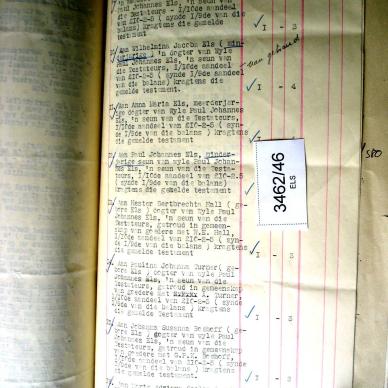 'n seun van die
Testateurs - 1/10de aandeel
van £16-2-5 ( synde 1/9de van die
balans) kragtens die gemelde
testament
1 - 3
Aan Wilhelmina Jacoba Els ( min-
derjarige ) 'n dogter van wyle
Paul Johannes Els, 'n seun van
die Testateurs, 1/10de aandeel
van
balans) kragtens die
gemelde testament.
1 - 4
Aan Anna Maria Els, meerderjar-
ige dogter van wyle Paul Johannes
Els, 'n seun van die Testateurs,
1/10de aandeel van £16-2-5 ( syn-
de 1/9de van die balans) kragtens
die gemelde testament
1 - 4
Aan Paul Johannes Els, minder-
jarige seun van wyle Paul Johan-
nes Els, 'n seun van die Testa-
teurs, 1/10de aandeel van £16-2-5
( synde 1/9de van die balans)
kragtens die gemelde testament
3462/46
ELS
Aan Hester Gertbrechta Hall ( ge-
bore Els ) dogter van wyle Paul
Johannes Els, 'n seun van die
Testateurs, getroud in gemeen-
skap van goedere met W.H. Hall,
1/10de aandeel van £16-2-5 ( syn-
de 1/9de van die balans) kragtens
die gemelde testament
1 - 3
Aan Paulina Johanna Turner( ge-
bore Els ) dogter van wyle Paul
Johannes Els, 'n seun van die
Testateurs, getroud in gemeenskap
van goedere met Turner,
1/10de aandeel van £16-2-5 ( synde
1/9de van die balans ) kragtens
die gemelde testament
1 - 3
Aan Johanna Susanna Beshoff (
bore Els ) dogter van wyle Paul
Johannes Els, 'n seun van die
Testateurs, getroud in gemeenskap
van goedere met G.F.K. Beshoff,
1/10de aandeel van £16-2-5 ( synde
1/9de van die balans) kragtens die
gemelde testament
1 - 3